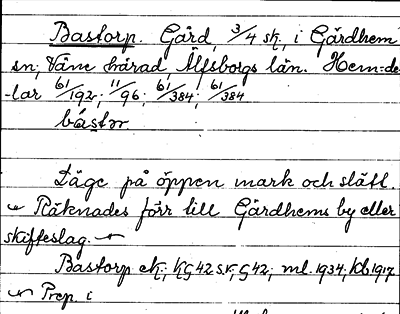 Bastorp. Gård, 3/4 sk., i Gärdhem
sn; Väne härad, Älfsborgs län. Hem:de-
-lar 61/192; 11/96; 61/384; 61/384
bástər.
Läge på öppen mark och slätt.
Räknades förr till Gärdhems by eller
skifteslag.
Bastorp ek; KG 42 s.v., G 42; ml. 1934; Kb 1917
Prep. i